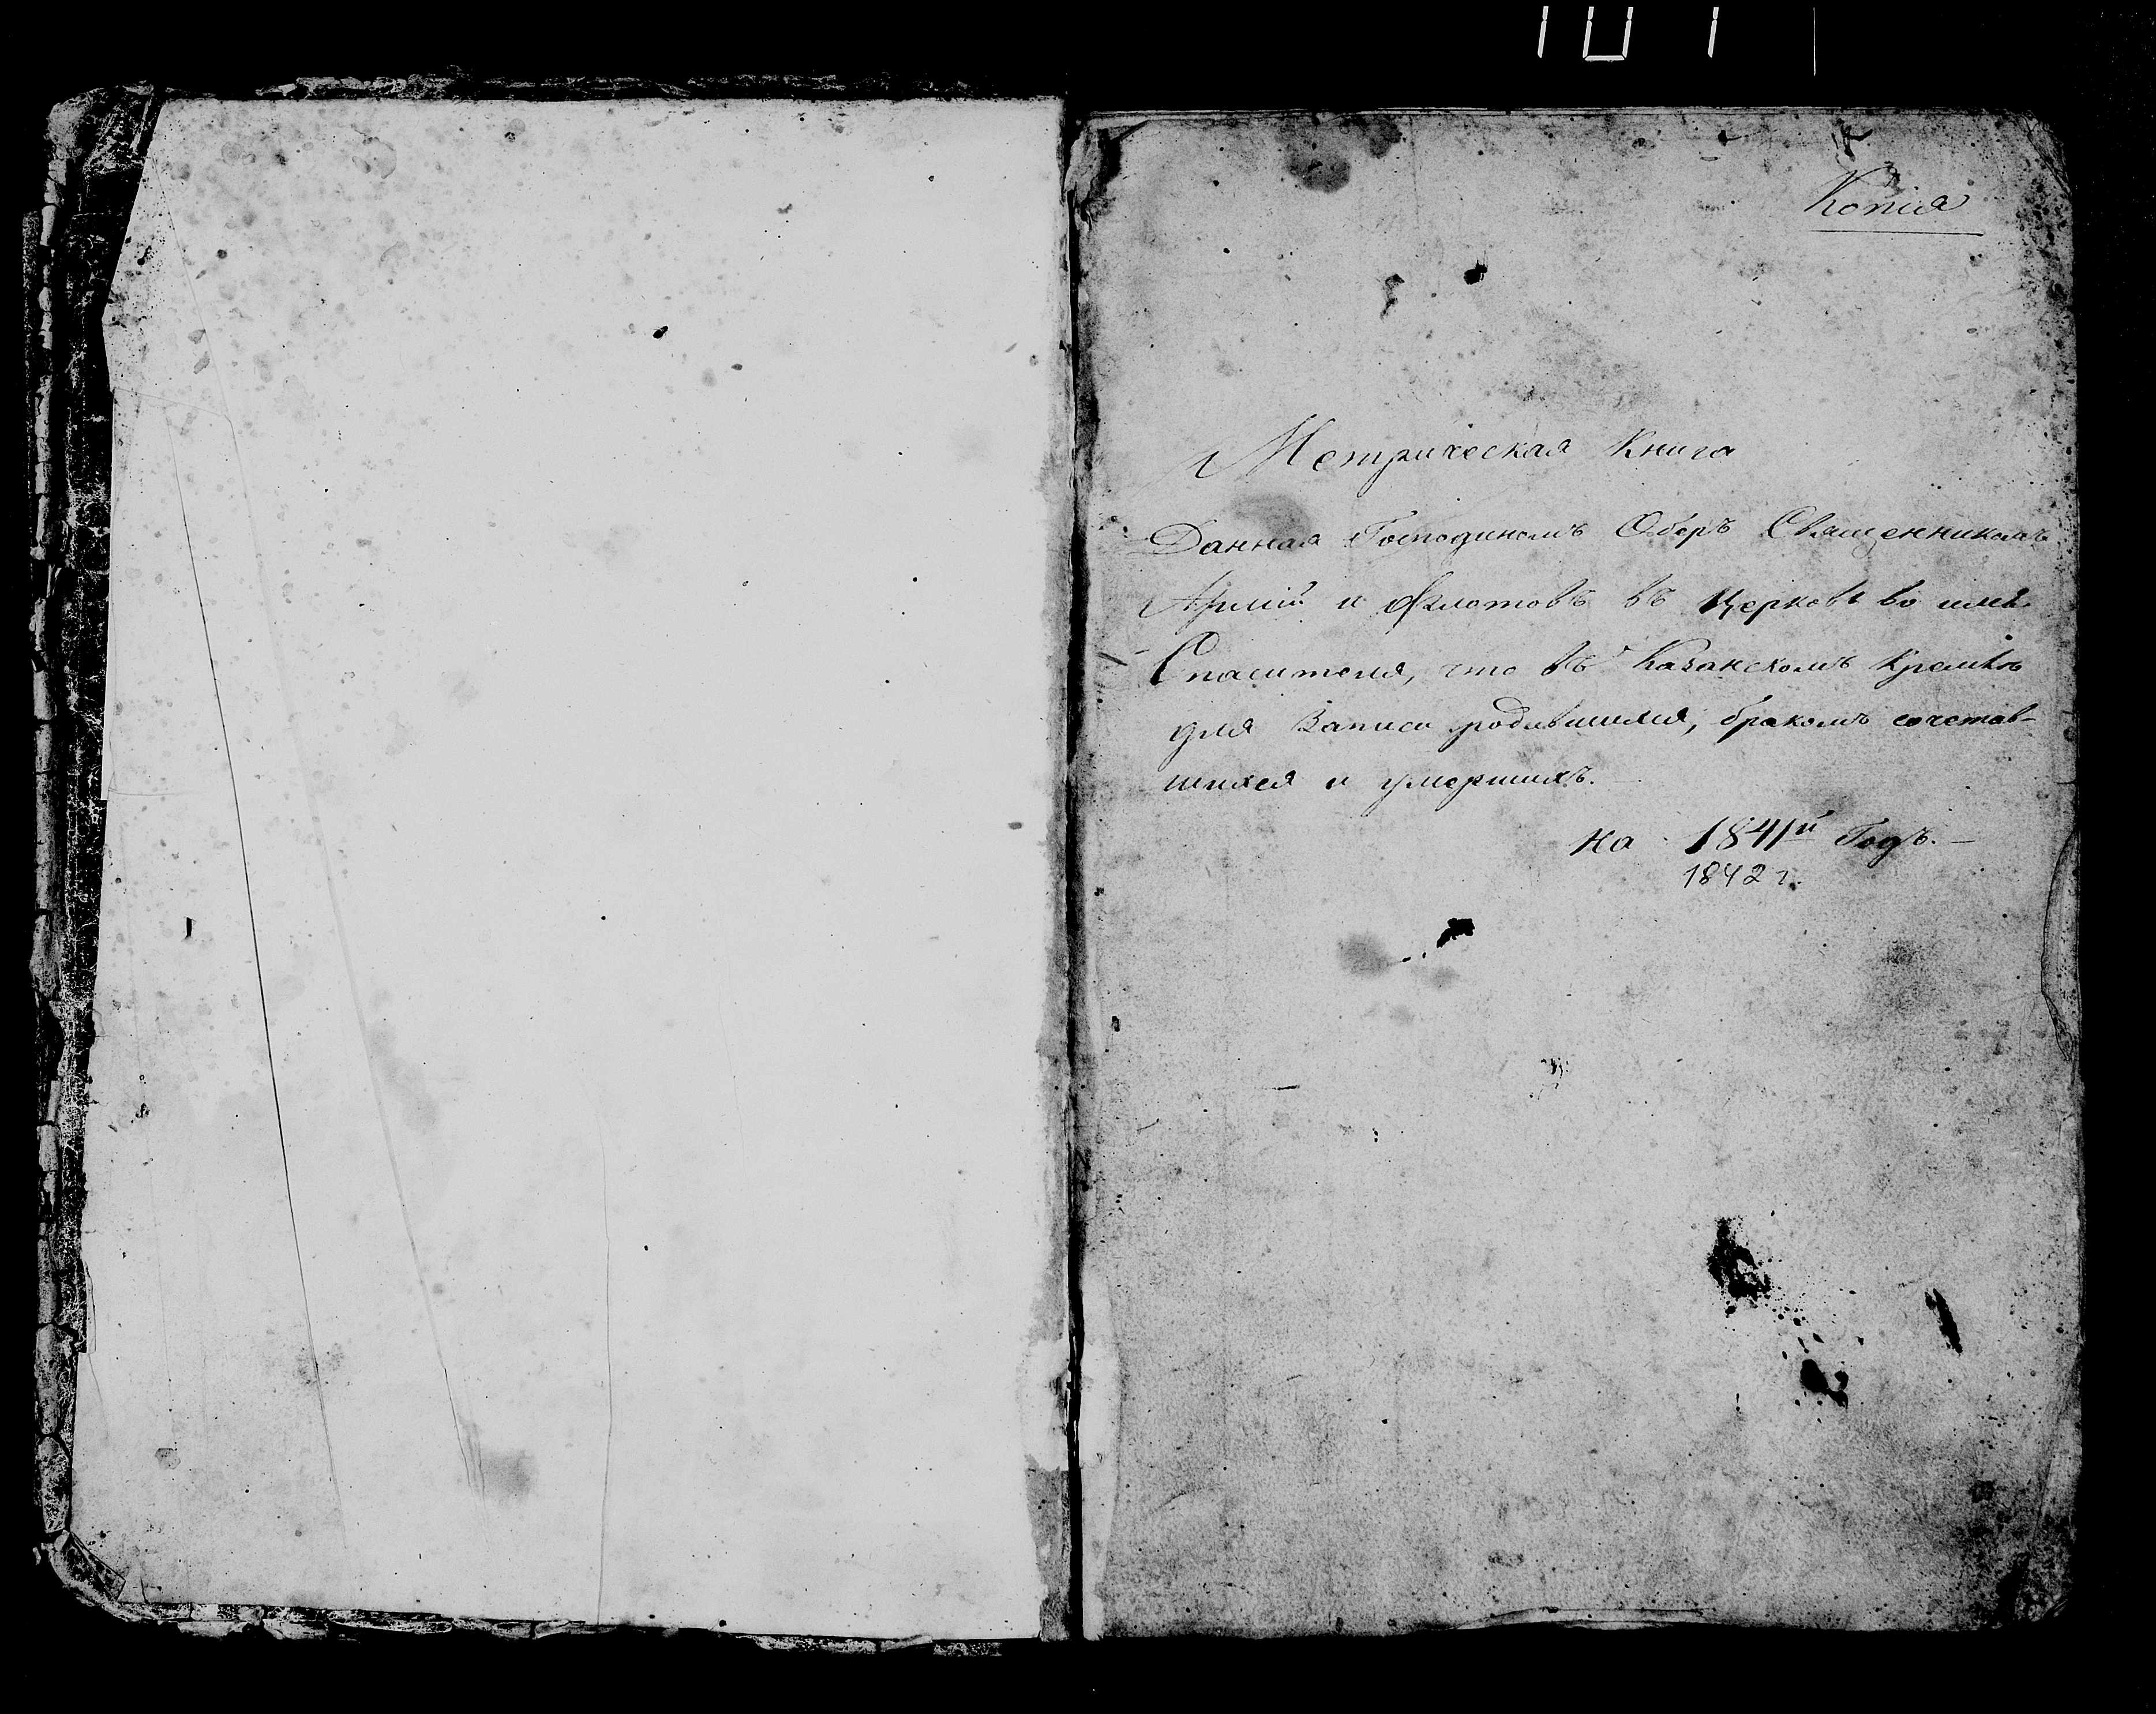 Копія
Метрическая Книга
Данная Господиномъ Оберъ Священникомъ
Армій и Флотовъ въ Церковь во имя
Спасителя, что въ Казанскомъ Кремлѣ
для Записи родившихся, бракомъ сочетав-
шихся и умершихъ.
на 1841й Годъ. —
1842 г.